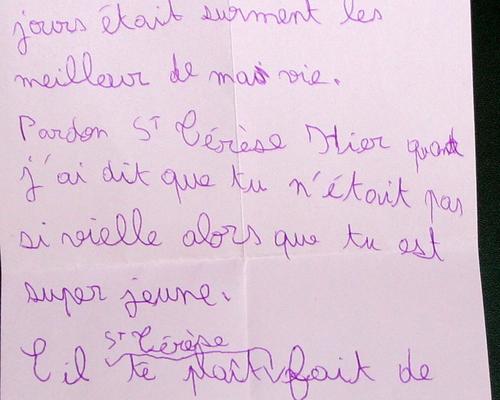 jours était surment les
meilleur de mai vie.
Pardon St Térèse Hier quant
j'ai dit que tu n'était pas
si vielle alors que tu est
super jeune.
St Térèse
Til te plaît fait de